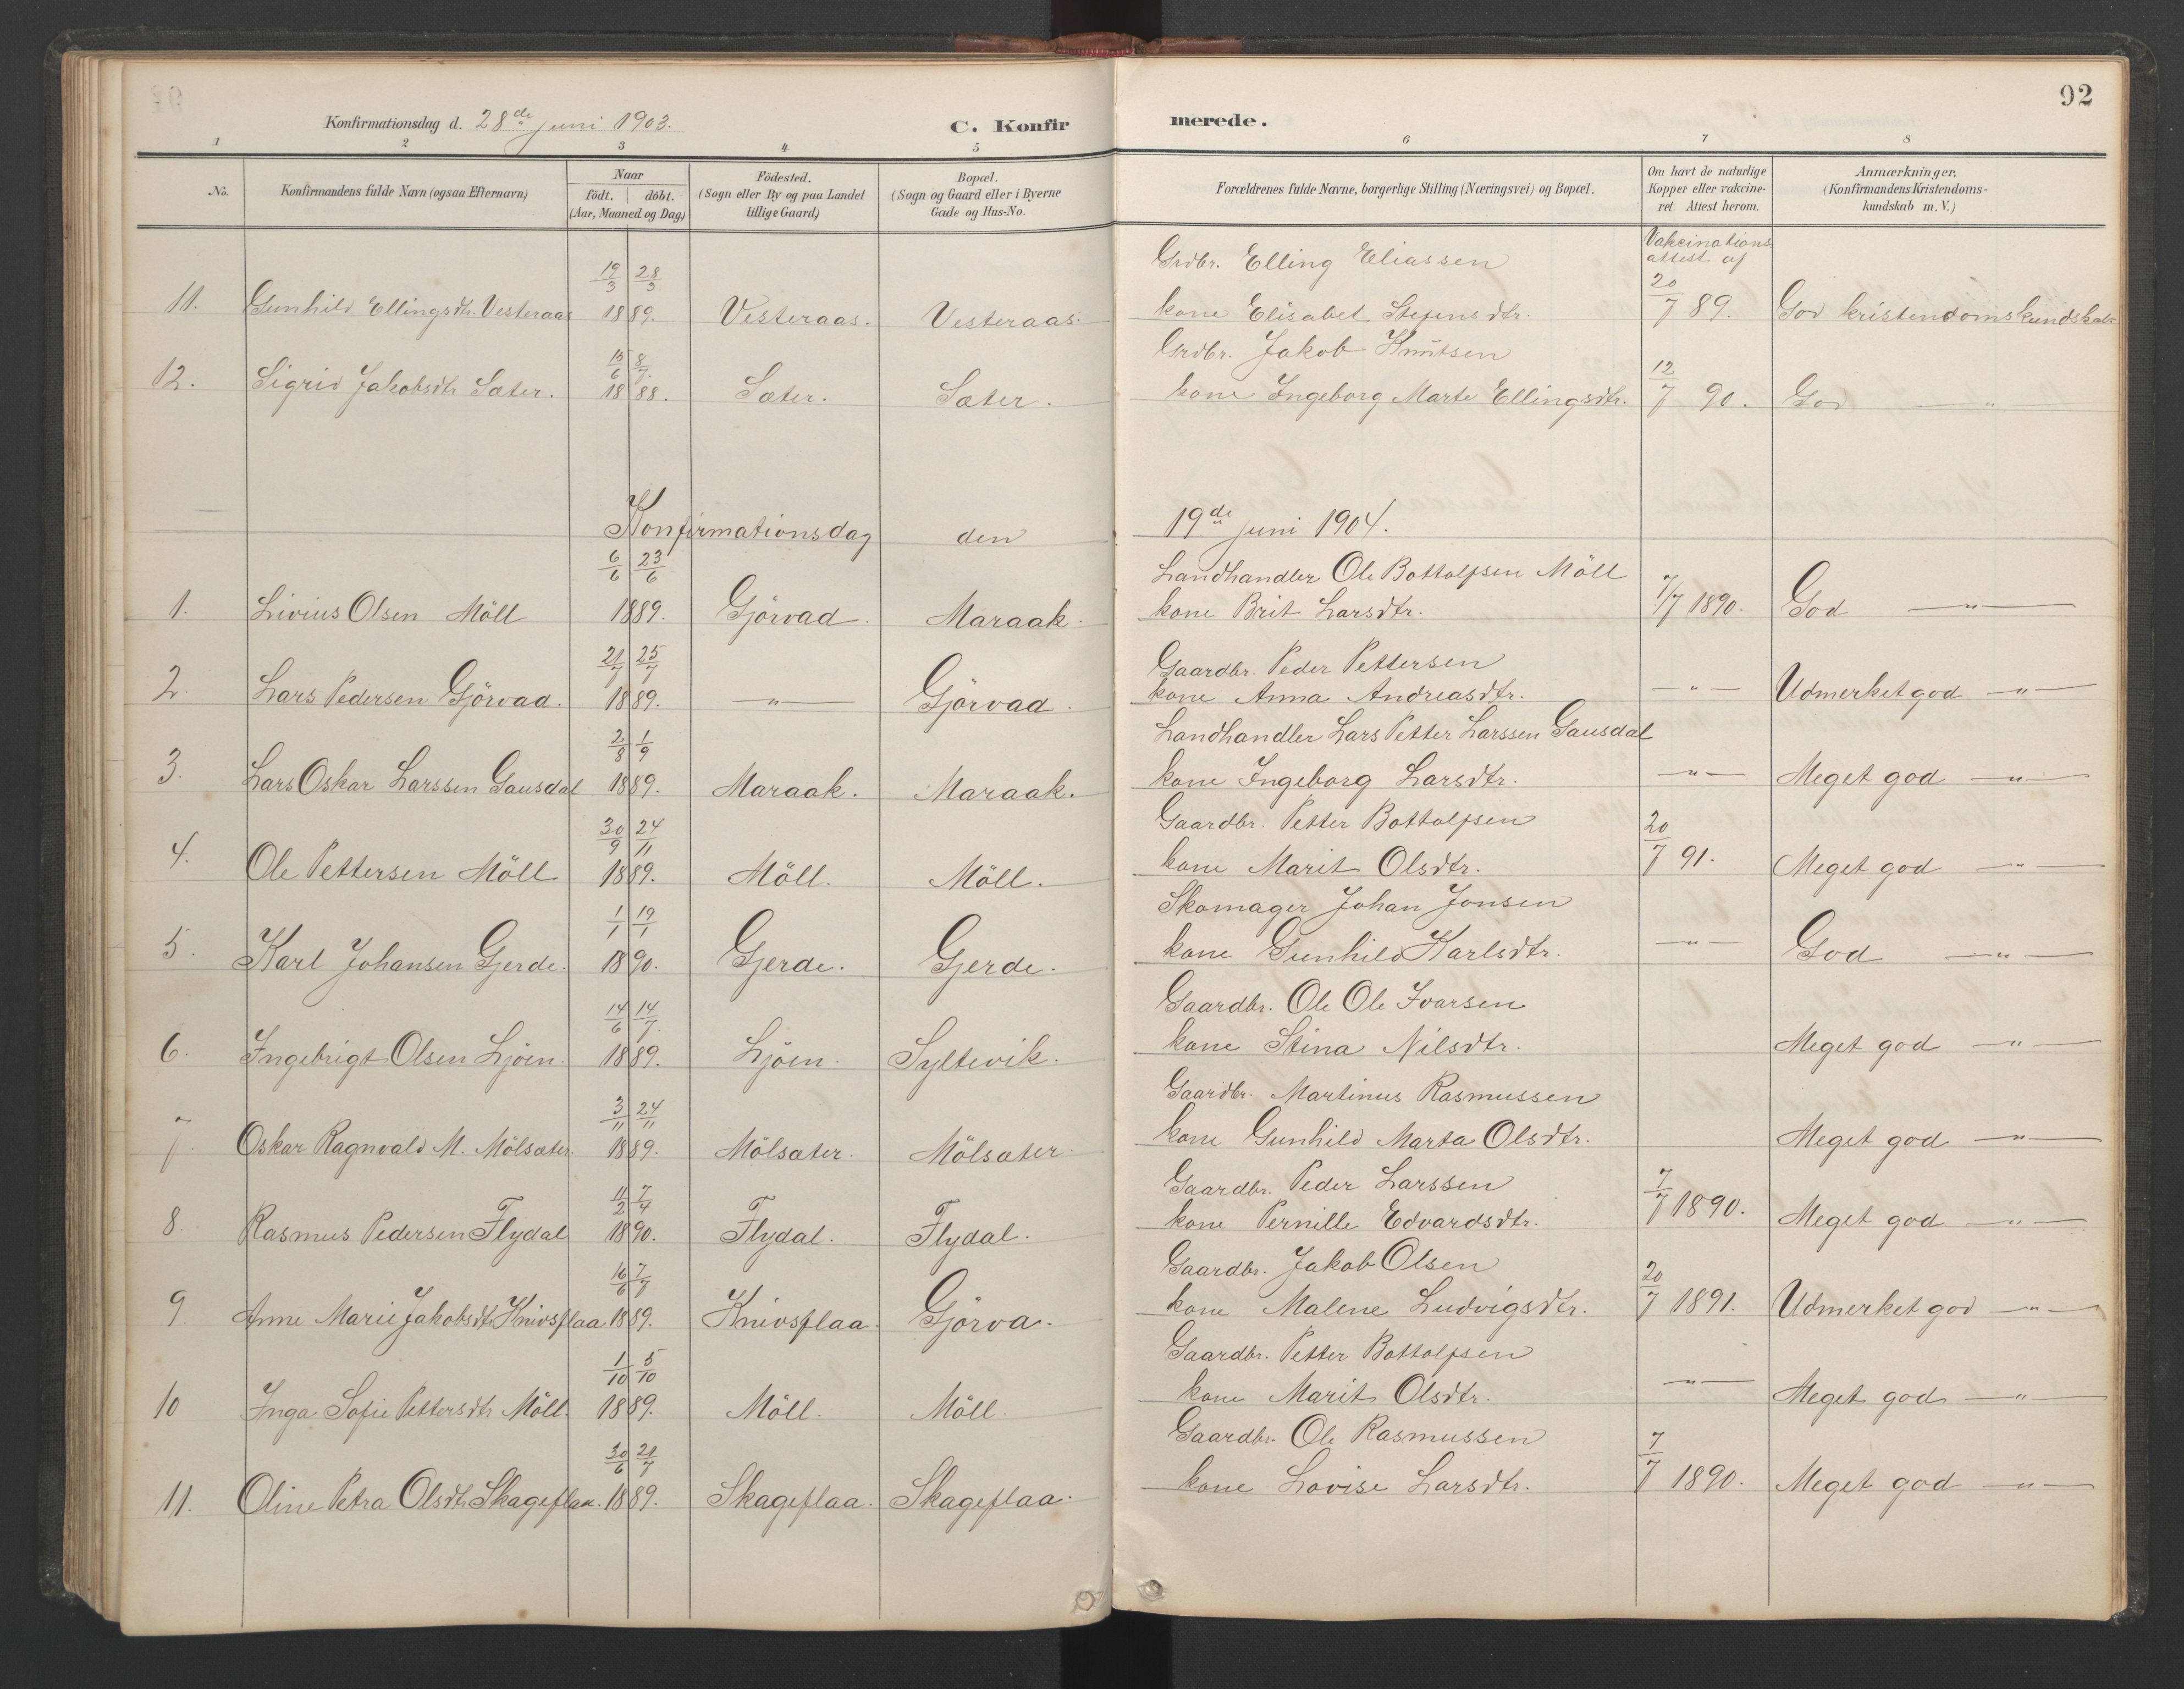 Konfirmationsdag d. 28de juni 1903. C. Konfirmerede. 92
1 2 3 4 5 6 7 8
No. Konfirmandens fulde Navn (ogsaa Efternavn) Naar födt. döbt. (Aar, Maaned og Dag) Födested. (Sogn eller By og paa Landet tillige Gaard) Bopæl. (Sogn og Gaard eller i Byerne Gade og Hus-No. Forældrenes fulde Navne, borgerlige Stilling (Næringsvei) og Bopæl. Om havt de naturlige Kopper eller vakcineret Attest herom. Anmærkninger. (Konfirmandens Kristendomskundskab m. V.)
19/3 28/3 Grdbr. Elling Eliassen Vakcinationsattest af
11. Gunhild Ellingsdtr. Vesteraas 1889. Vesteraas. Vesteraas. kone Elisabet Stefensdtr. 20/7 89. God kristendomskundskab
15/6 8/7. Grdbr. Jakob Knutsen
12. Sigrid Jakobsdtr Sæter. 1888. Sæter. Sæter. kone Ingeborg Marte Ellingsdtr. 12/7 90. God "
Konfirmationsdag den 19de juni 1904.
6/6 23/6 Landhandler Ole Bottolfsen Möll
1. Livius Olsen Möll 1889. Gjörvad. Maraak. kone Brit Larsdtr. 7/7 1890. God — " —
21/7 25/7 Gaardbr. Peder Pettersen
2. Lars Pedersen Gjörvad. 1889. — " — Gjörvad. kone Anna Andreasdtr. — " — Udmerket god — " —
2/8 1/9 Landhandler Lars Petter Larssen Gausdal
3. Lars Oskar Larssen Gausdal 1889. Maraak. Maraak. kone Ingeborg Larsdtr. — " — Meget god — " —
30/9 24/11 Gaardbr. Petter Bottolfsen
4. Ole Pettersen Möll 1889. Möll. Möll. kone Marit Olsdtr. 20/7 91. Meget god — " —
1/1 19/1 Skomager Johan Jonsen
5. Karl Johansen Gjerde. 1890. Gjerde. Gjerde. kone Gunhild Karlsdtr. — " — God — " —
14/6 14/7. Gaardbr. Ole Ole Ivarsen
6. Ingebrigt Olsen Ljöen. 1889. Ljöen. Syltevik. kone Stina Nilsdtr. Meget god — " —
3/11 24/11 Gaardbr. Martinus Rasmussen
7. Oskar Ragnvald M. Mölsæter. 1889. Mölsæter. Mölsæter. kone Gunhild Marta Olsdtr. Meget god — " —
11/2 7/4 Gaardbr. Peder Larssen
8. Rasmus Pedersen Flydal 1890. Flydal. Flydal. kone Pernille Edvardsdtr. 7/7 1890. Meget god — " —
16/6 7/7 Gaardbr. Jakob Olsen
9. Anne Marie Jakobsdtr Knivsflaa 1889. Knivsflaa. Gjörva. kone Malene Ludvigsdtr. 20/7 1891. Udmerket god — " —
1/10 5/10 Gaardbr. Petter Bottolfsen
10 Inga Sofie Pettersdtr Möll. 1889. Möll. Möll. kone Marit Olsdtr. — " — Meget god — " —
30/6 21/7 Gaardbr. Ole Rasmussen
11. Oline Petra Olsdtr Skageflaa. 1889. Skageflaa. Skageflaa. kone Lovise Larsdtr. 7/7 1890. Meget god — " —